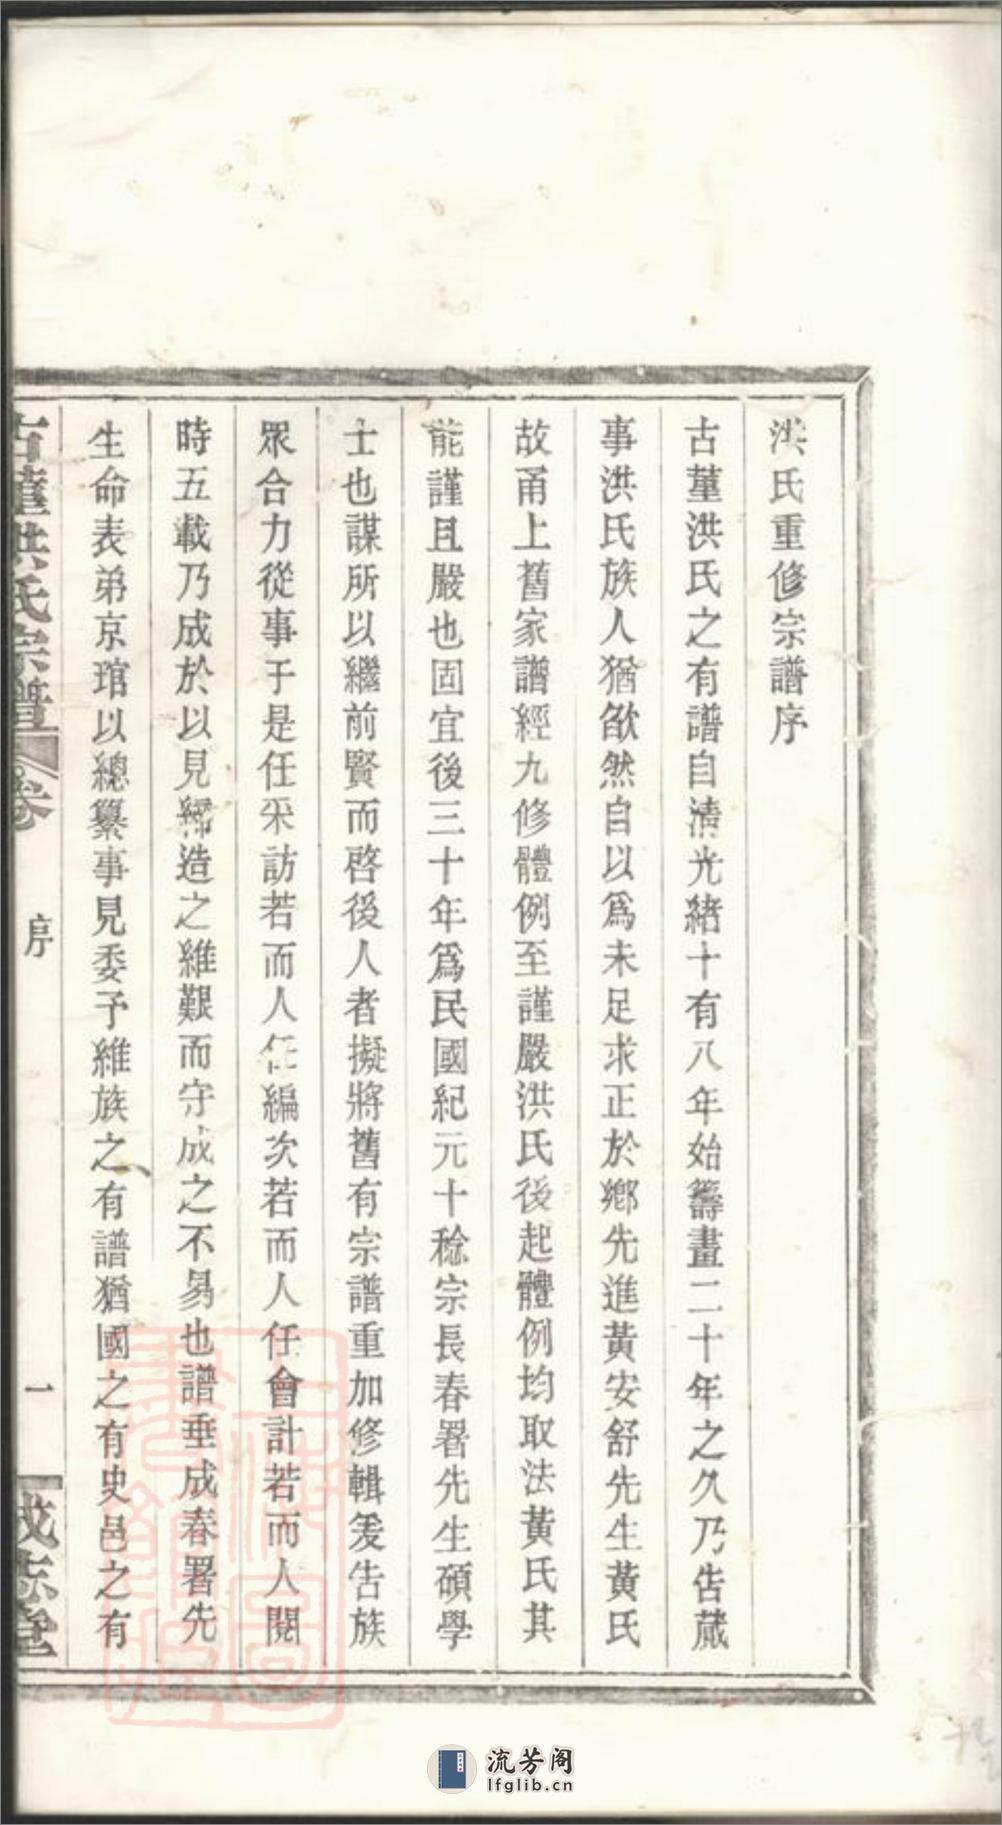 洪氏重修宗譜序
古菫洪氏之有譜自清光緒十有八年始籌畫二十年之久乃告蕆
事洪氏族人猶欿然自以爲未足求正於鄉先進黃安舒先生黃氏
故甬上舊家譜經九修體例至謹嚴洪氏後起體例均取法黃氏其
能謹且嚴也固宜後三十年爲民國紀元十稔宗長春署先生碩學
士也謀所以繼前賢而啓後人者擬將舊有宗譜重加修輯爰告族
眾合力從事于是任采訪若而人任編次若而人任會計若而人閱
時五載乃成於以見締造之維艱而守成之不易也譜垂成春署先
生命表弟京琯以總纂事見委予維族之有譜猶國之有史邑之有
古菫洪氏宗譜
卷
序
一
成志堂
流芳阁
lfglib.cn